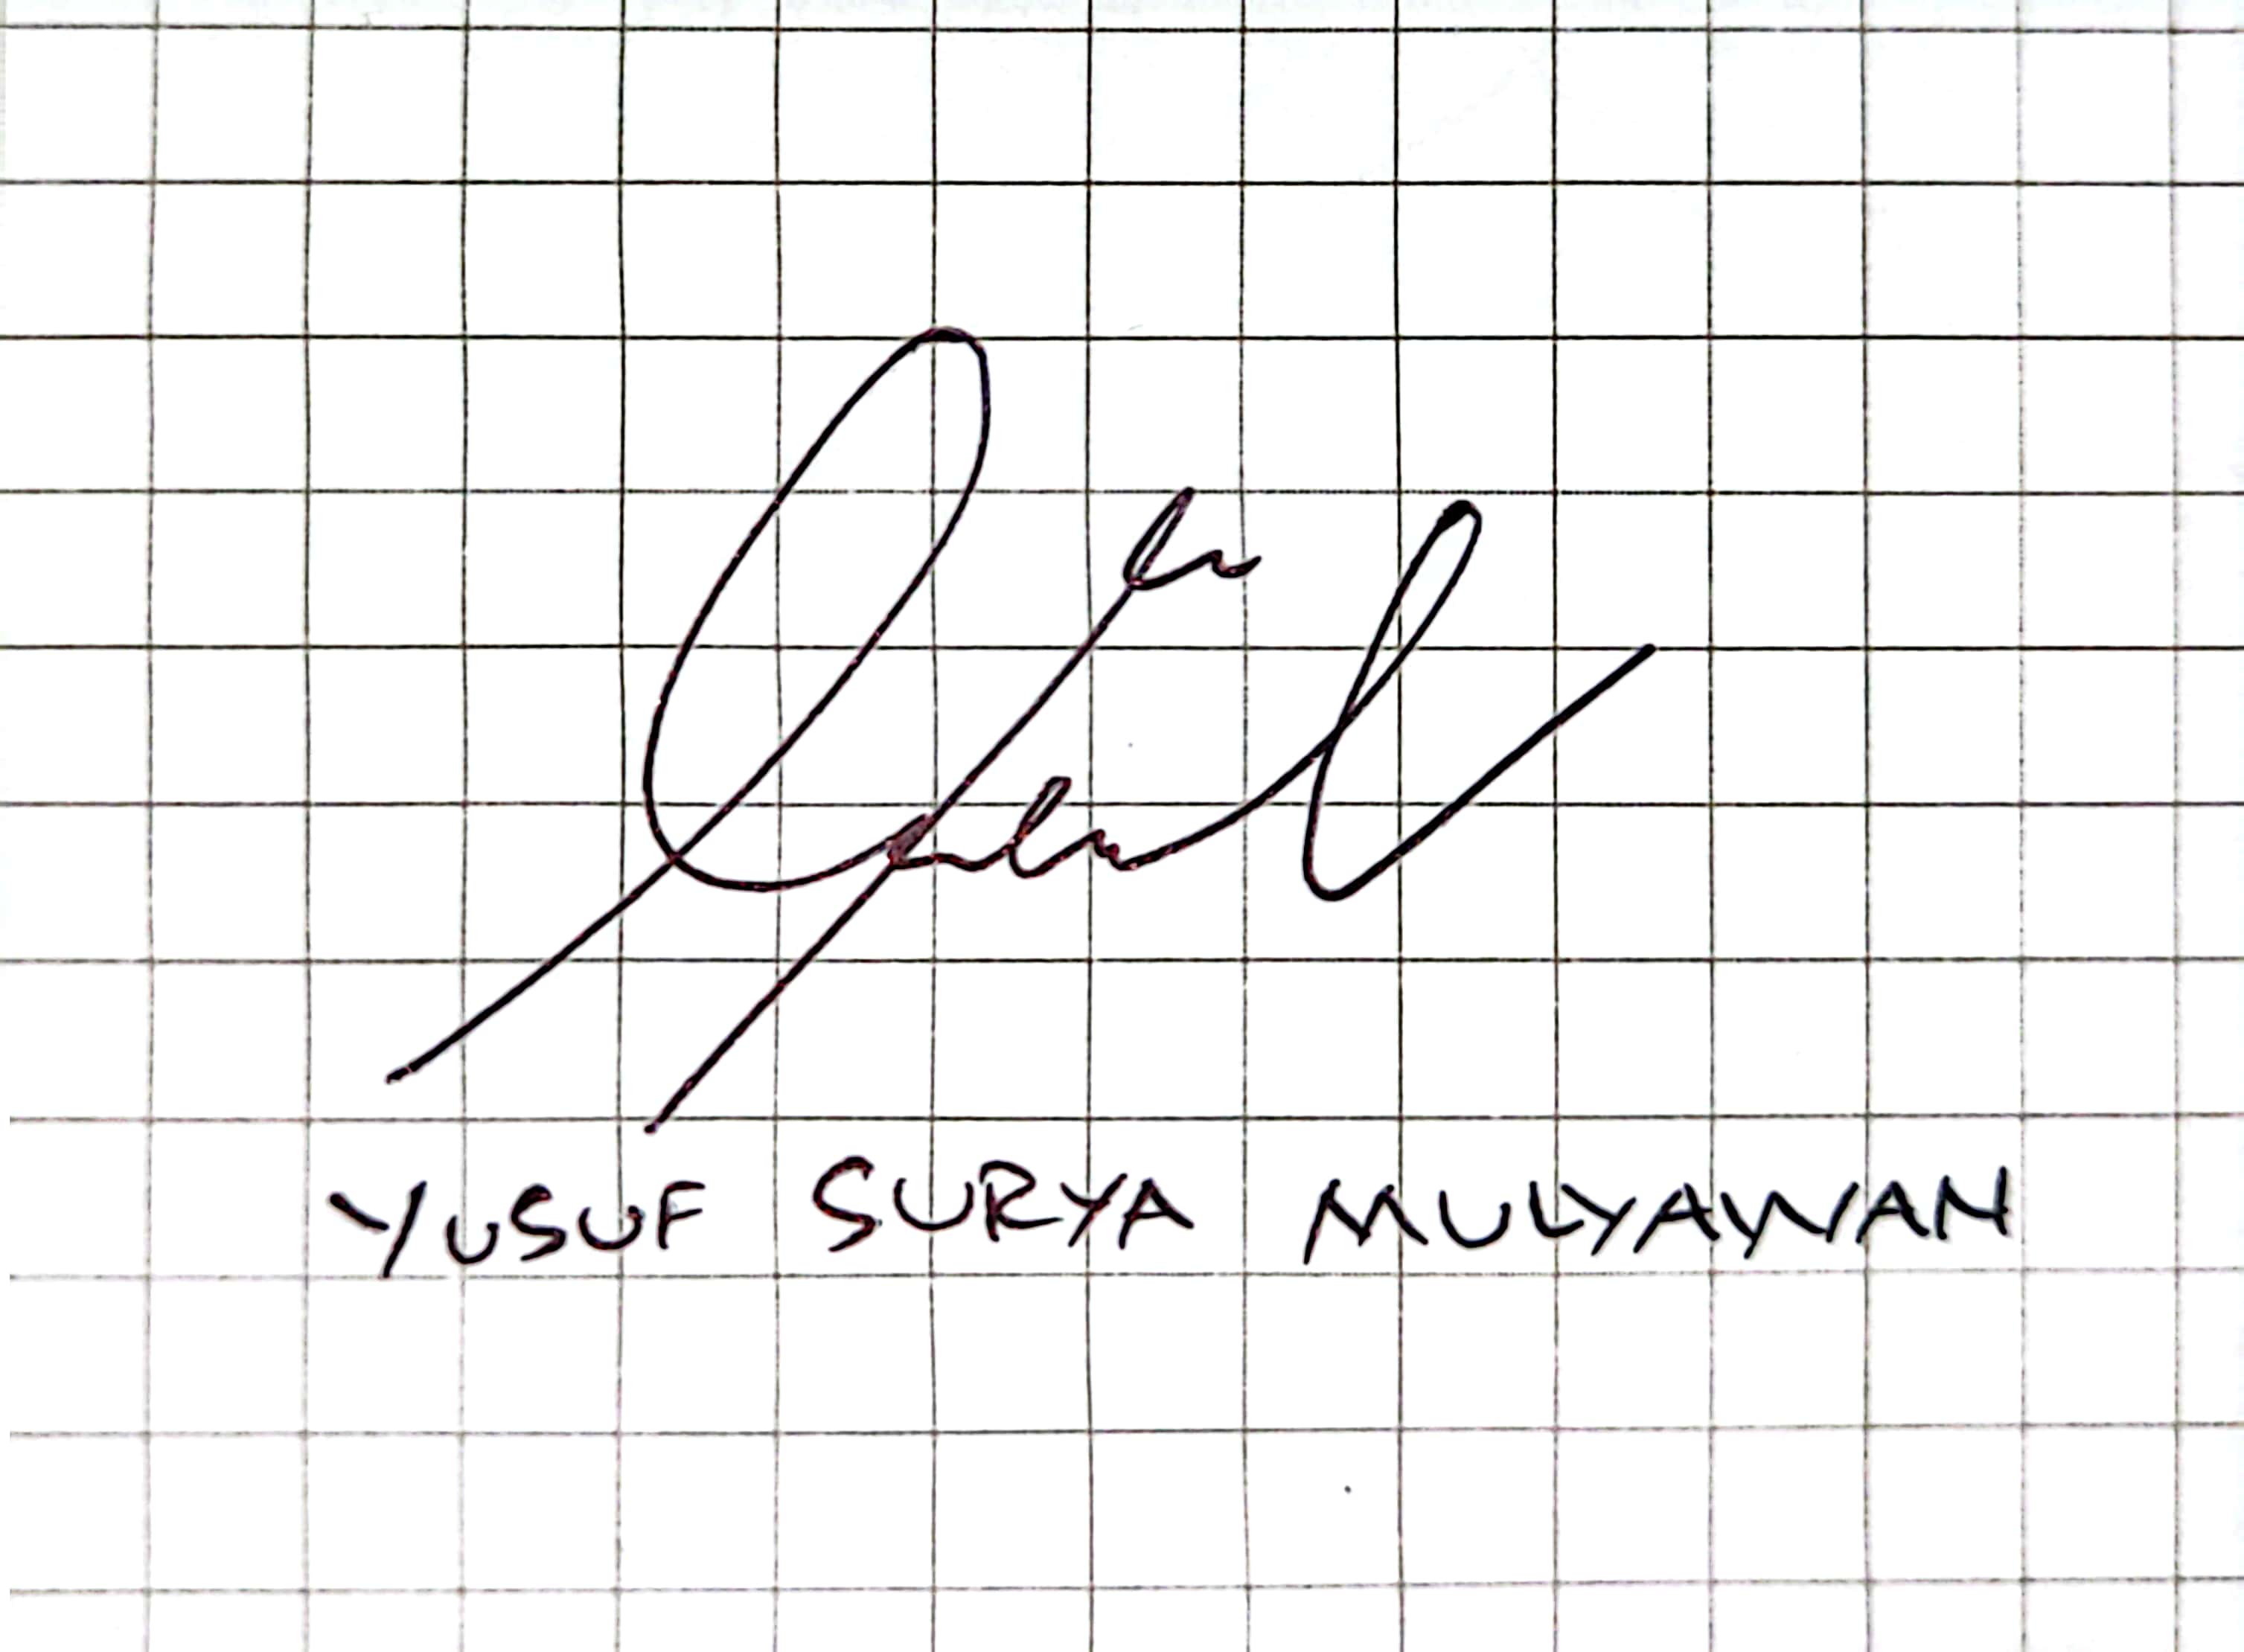 YUSUF SURYA MULYAWAN